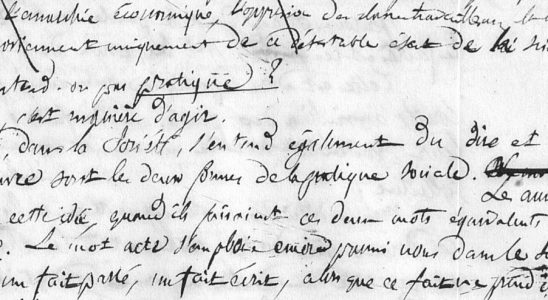 l'anarchie économique, l'oppression des classes travailleuses, le
proviennent uniquement de ce détestable état de
entend-on par pratique ?
c'est manière d'agir.
, dans la Société, s'entend également du dire et
sont les deux formes de la pratique sociale.
cette idée quand ils faisaient ces deux mots équivalents
. Le mot acte s'emploie encore parmi nous dans le
un fait passé, un fait écrit, alors que ce fait ne